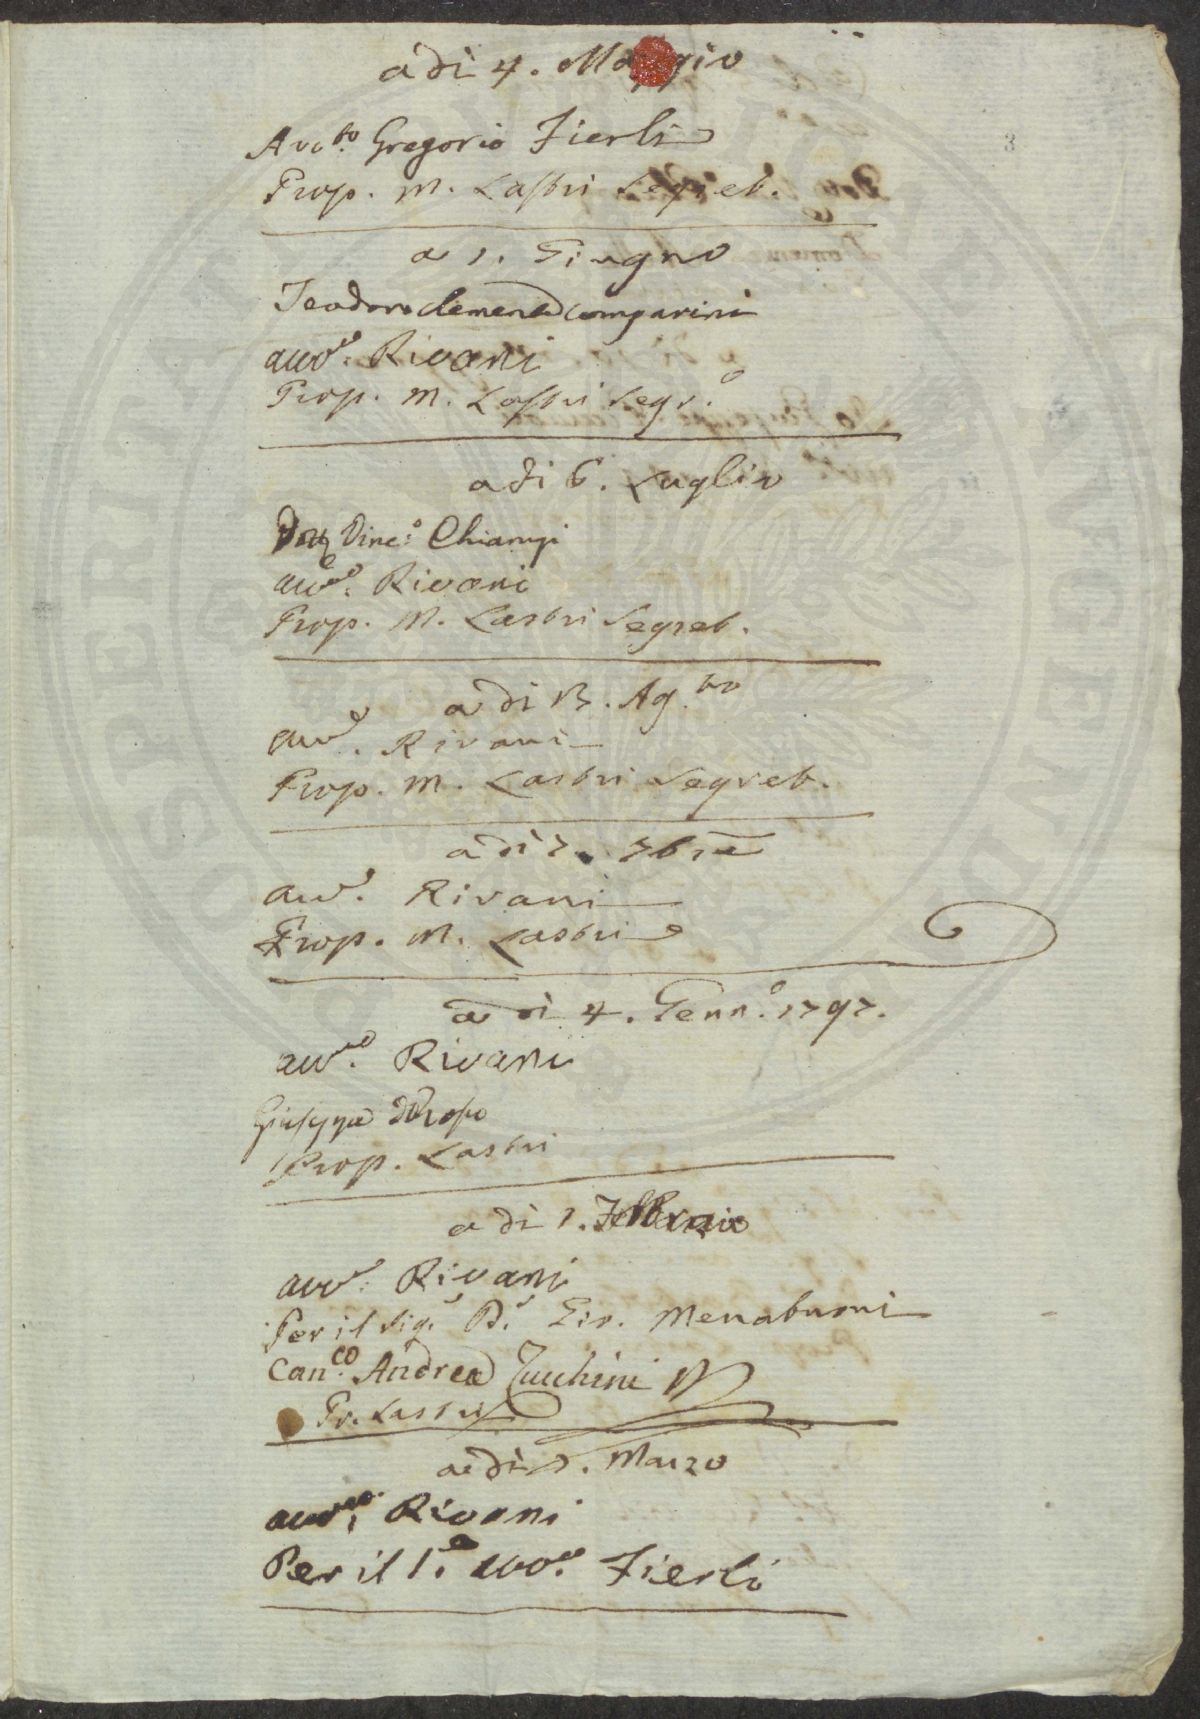 a dì 4. Maggio
3
Avv.to Gregorio Fierli
Prop. M. Lastri Segret.
a 1. Giugno
Teodoro Clemente Comparini
Avv.to Rivani
Prop. M. Lastri Segr.o
a dì 6. Luglio
Vinc.o Chiarugi
Avv.to Rivani
Prop. M. Lastri Segret.
a dì 13. Ag.to
Avv.o Rivani
Prop. M. Lastri Segret.
a dì 7. 7bre
Avv.o Rivani
Prop. M. Lastri
a dì 4. Genn.o 1797.
Avv.to Rivani
Giuseppe del Rosso
Prop. Lastri
a dì 1. Febbraio
Avv.o Rivani
Per il Sig.r D.r Gio. Menabuoni
Can.co Andrea Zucchini
Pr. Lastri
a dì 1. Marzo
Avv.to Rivani
Per il S.e Avv.o Fierli